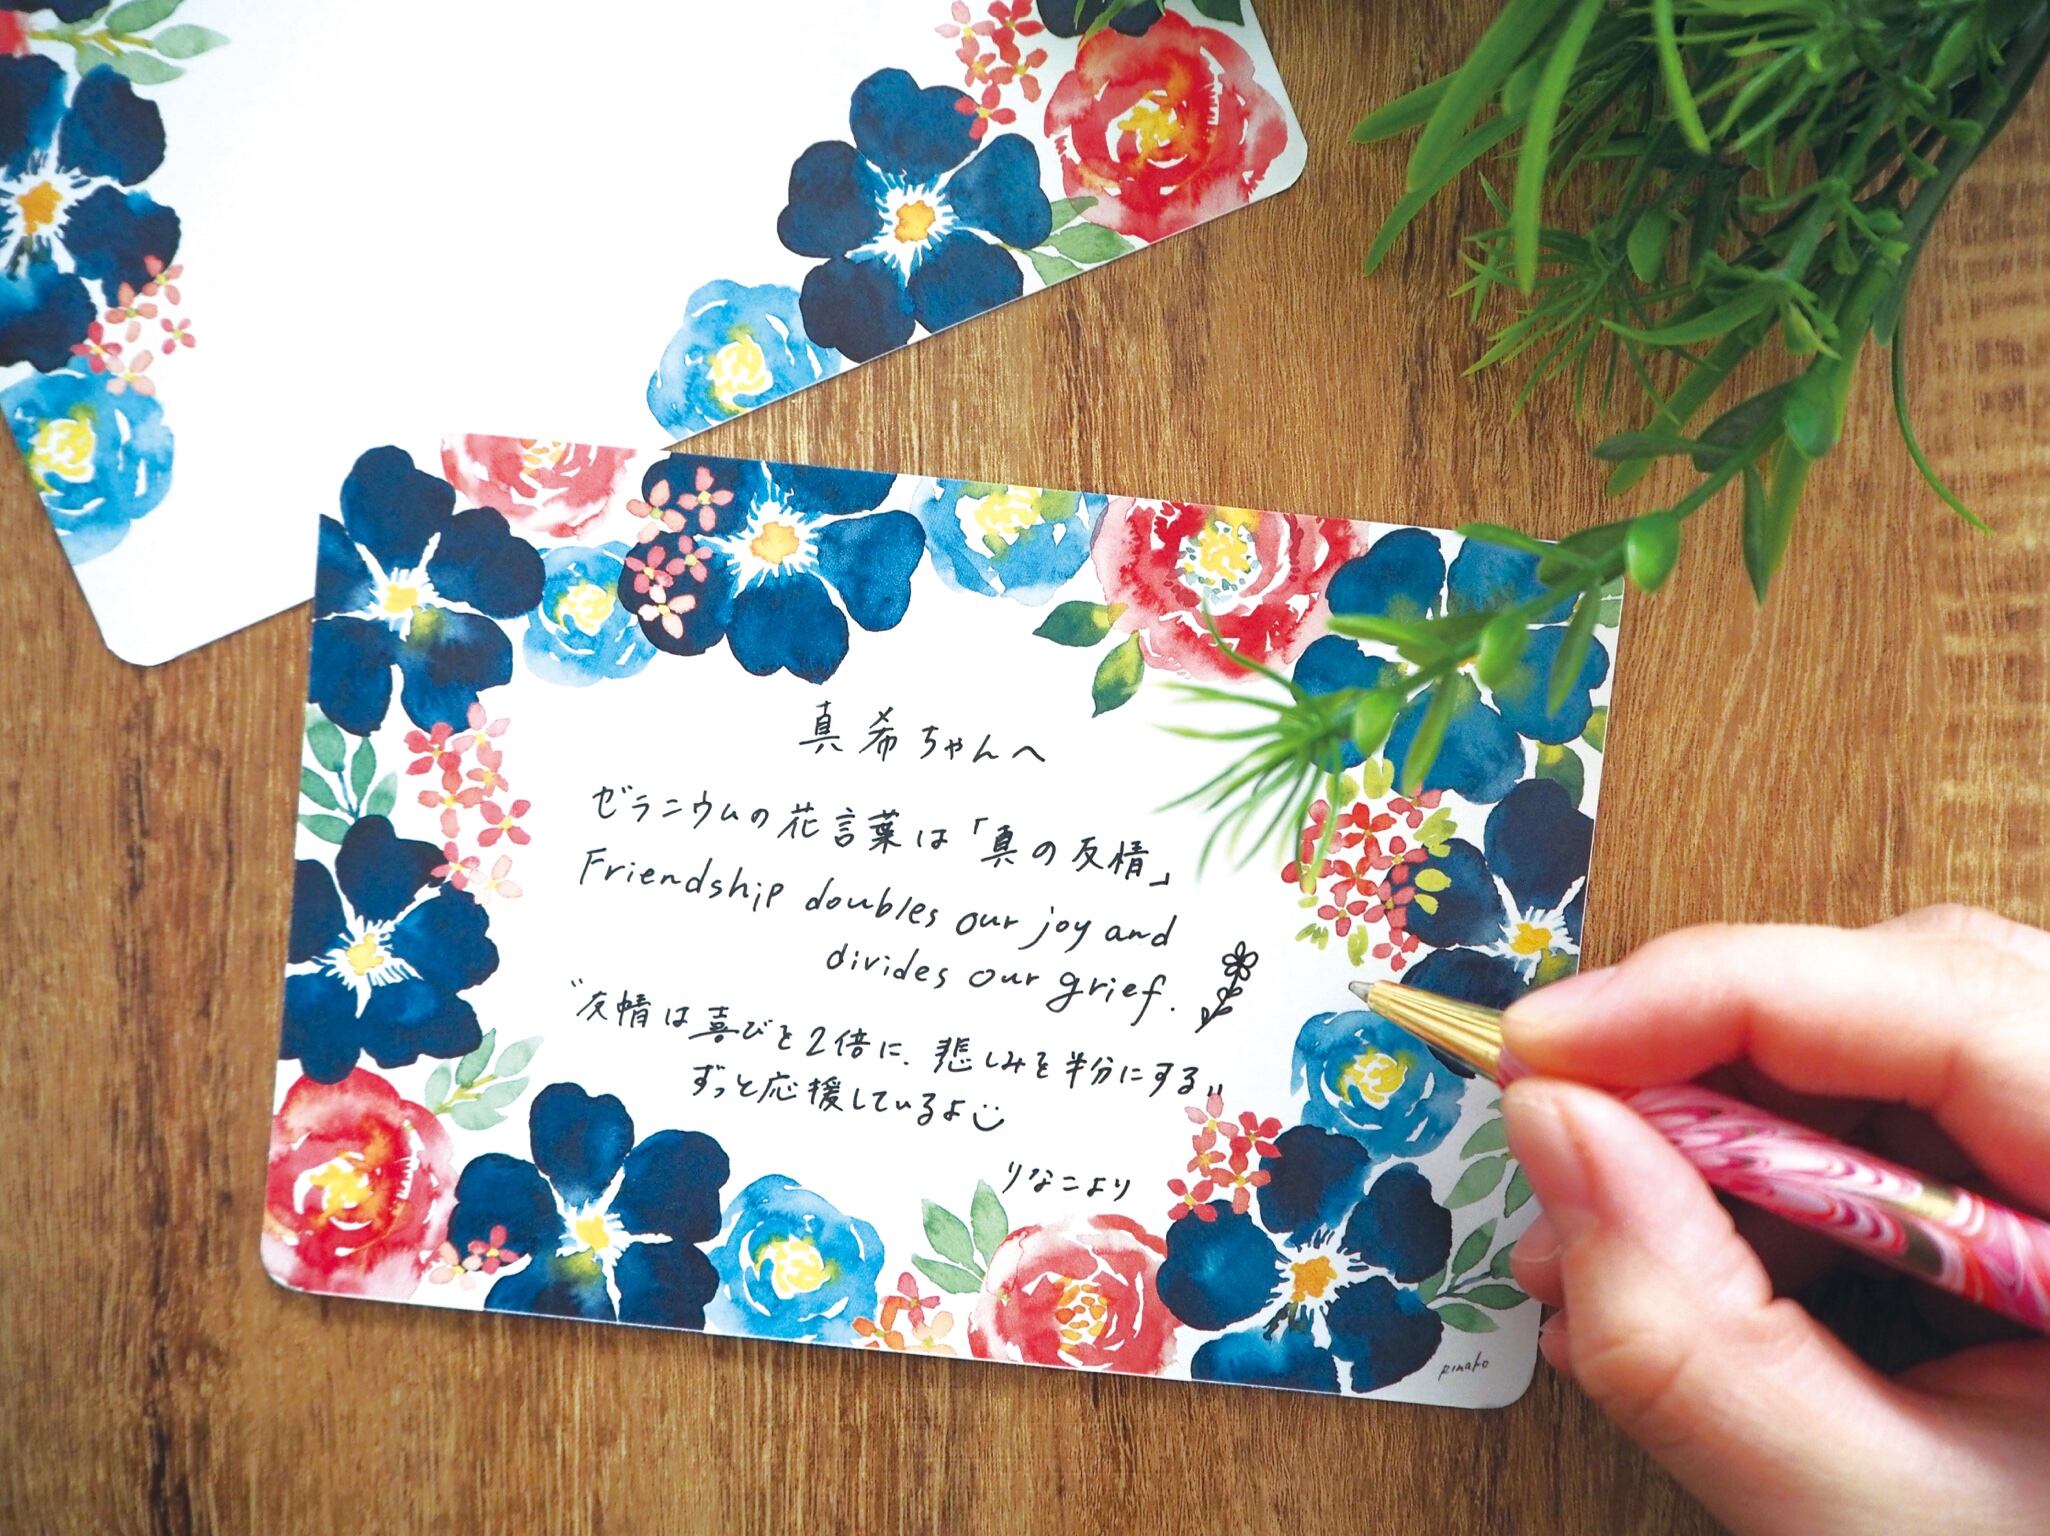 真希ちゃんへ
ゼラニウムの花言葉は「真の友情」
Friendship doubles our joy and
divides our grief.
〝友情は喜びを2倍に、悲しみを半分にする〟
ずっと応援しているよ
りなこより
Rinako